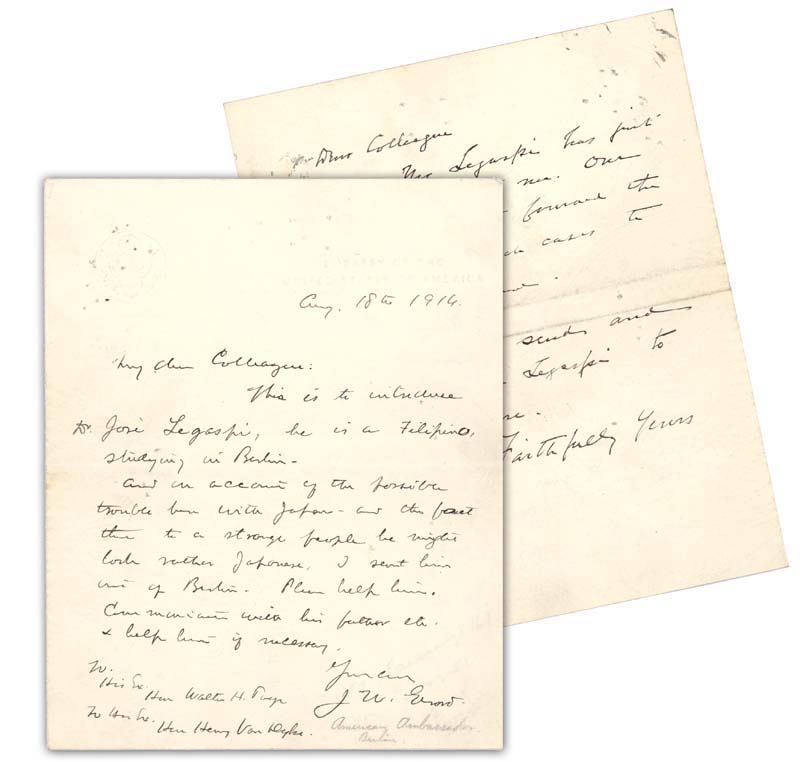 Aug. 18th 1914.
My dear Colleague:
This is to introduce
Dr. José Legaspi, he is a Filipino,
studying in Berlin-
And on account of the possible
trouble here with Japan - and the fact
that to a strange people he might
look rather Japanese, I sent him
out of Berlin. Please help him.
Communicate with his father etc.
& help him if necessary.
J W. Gerard.
To
His Ex. Hon Walter H. Page
To His Ex. Hon Henry Van Dyke.
American Ambassador
Berlin.
Dear Colleague
Legaspi has just
me. Our
forward the
cases to
sends and
Legaspi to
Faithfully Yours